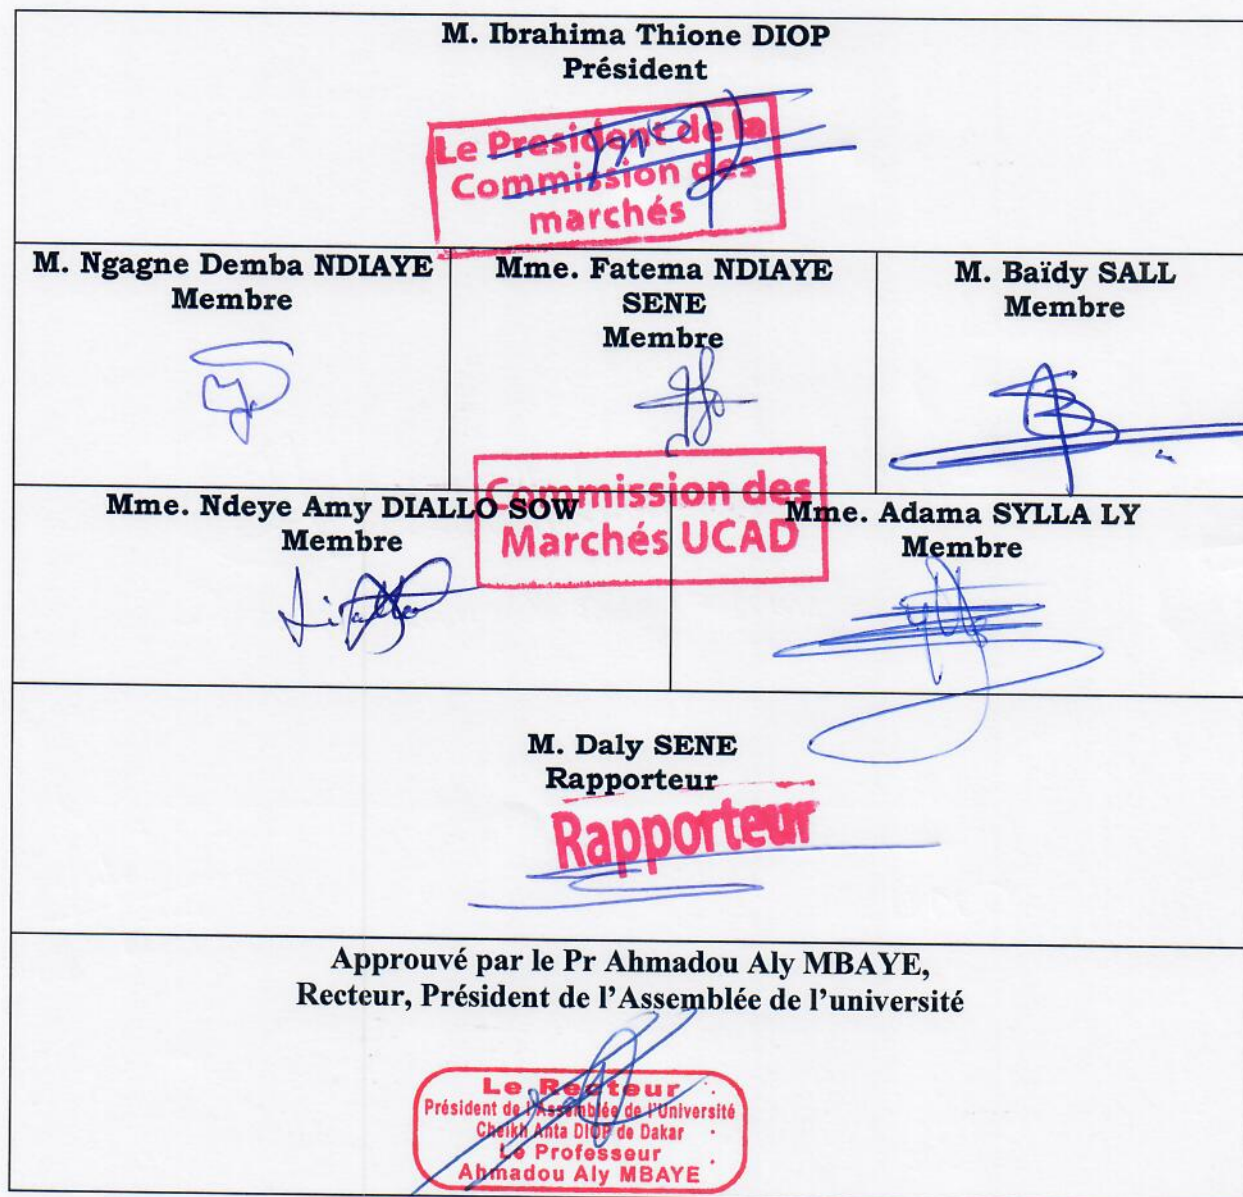 M. Ibrahima Thione DIOP
Président
Le President de la
Commission des
marchés
M. Ngagne Demba NDIAYE
Membre
Mme. Fatema NDIAYE
SENE
Membre
M. Baïdy SALL
Membre
Commission des
Marchés UCAD
Mme. Ndeye Amy DIALLO SOW
Membre
Mme. Adama SYLLA LY
Membre
M. Daly SENE
Rapporteur
Rapporteur
Approuvé par le Pr Ahmadou Aly MBAYE,
Recteur, Président de l’Assemblée de l’université
Le Recteur
Président de l'Assemblée de l'Université
Cheikh Anta DIOP de Dakar
Le Professeur
Ahmadou Aly MBAYE